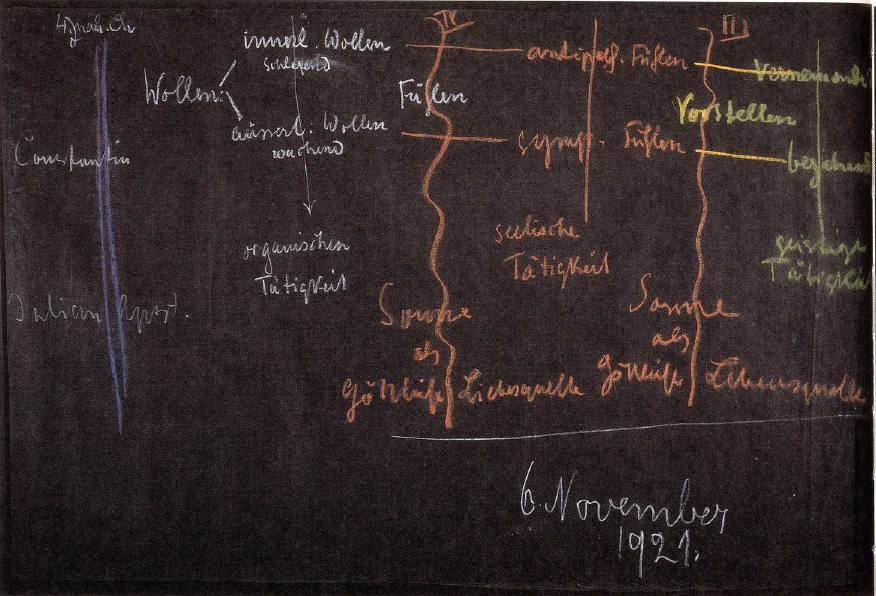 4. Jhdt. n. Chr.
Constantin
Julian Apost.
Wollen:
innerl. Wollen
schlafend
äusserl. Wollen
wachend
organischen
Tätigkeit
IV
Fühlen
antipath. Fühlen
symp. Fühlen
seelische
Tätigkeit
Sonne
als
Göttliche Liebesquelle
III
Vorstellen
verneinende
bejahend
geistige
Tätigkeit
Sonne
als
Göttliche Lebensquelle
6. November
1921.